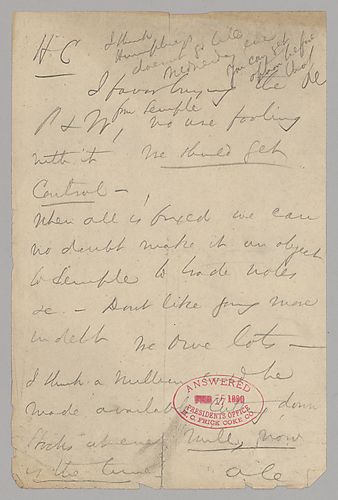 H C I think
Humphreys
doesn't go till
Wednesday eve
You can get
before
I favor buying the
P & W, from Semple
no use fooling
with it We should get
Control –
When all is fixed we can
no doubt make it an object
to Semple to trade notes
&c – Dont like going more
in debt We owe lots –
I think a million
made available
Stocks at every Mill, now
is the time
ANSWERED
1890
PRESIDENTS OFFICE
H. C. FRICK COKE CO.
down
AC